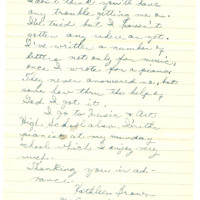 don't think you'll have
any trouble getting me on.
I've tried but I haven't
gotten any where as yet.
I've written a number of
letters not only for music,
once I wrote for a piano.
They never answered me, but
some how thru the help of
God I got it.
I go to Music & Art
High School above. I'm the
pianist at my sunday
school which I enjoy very
much.
Thanking you in ad-
vance.
Kathleen Brown